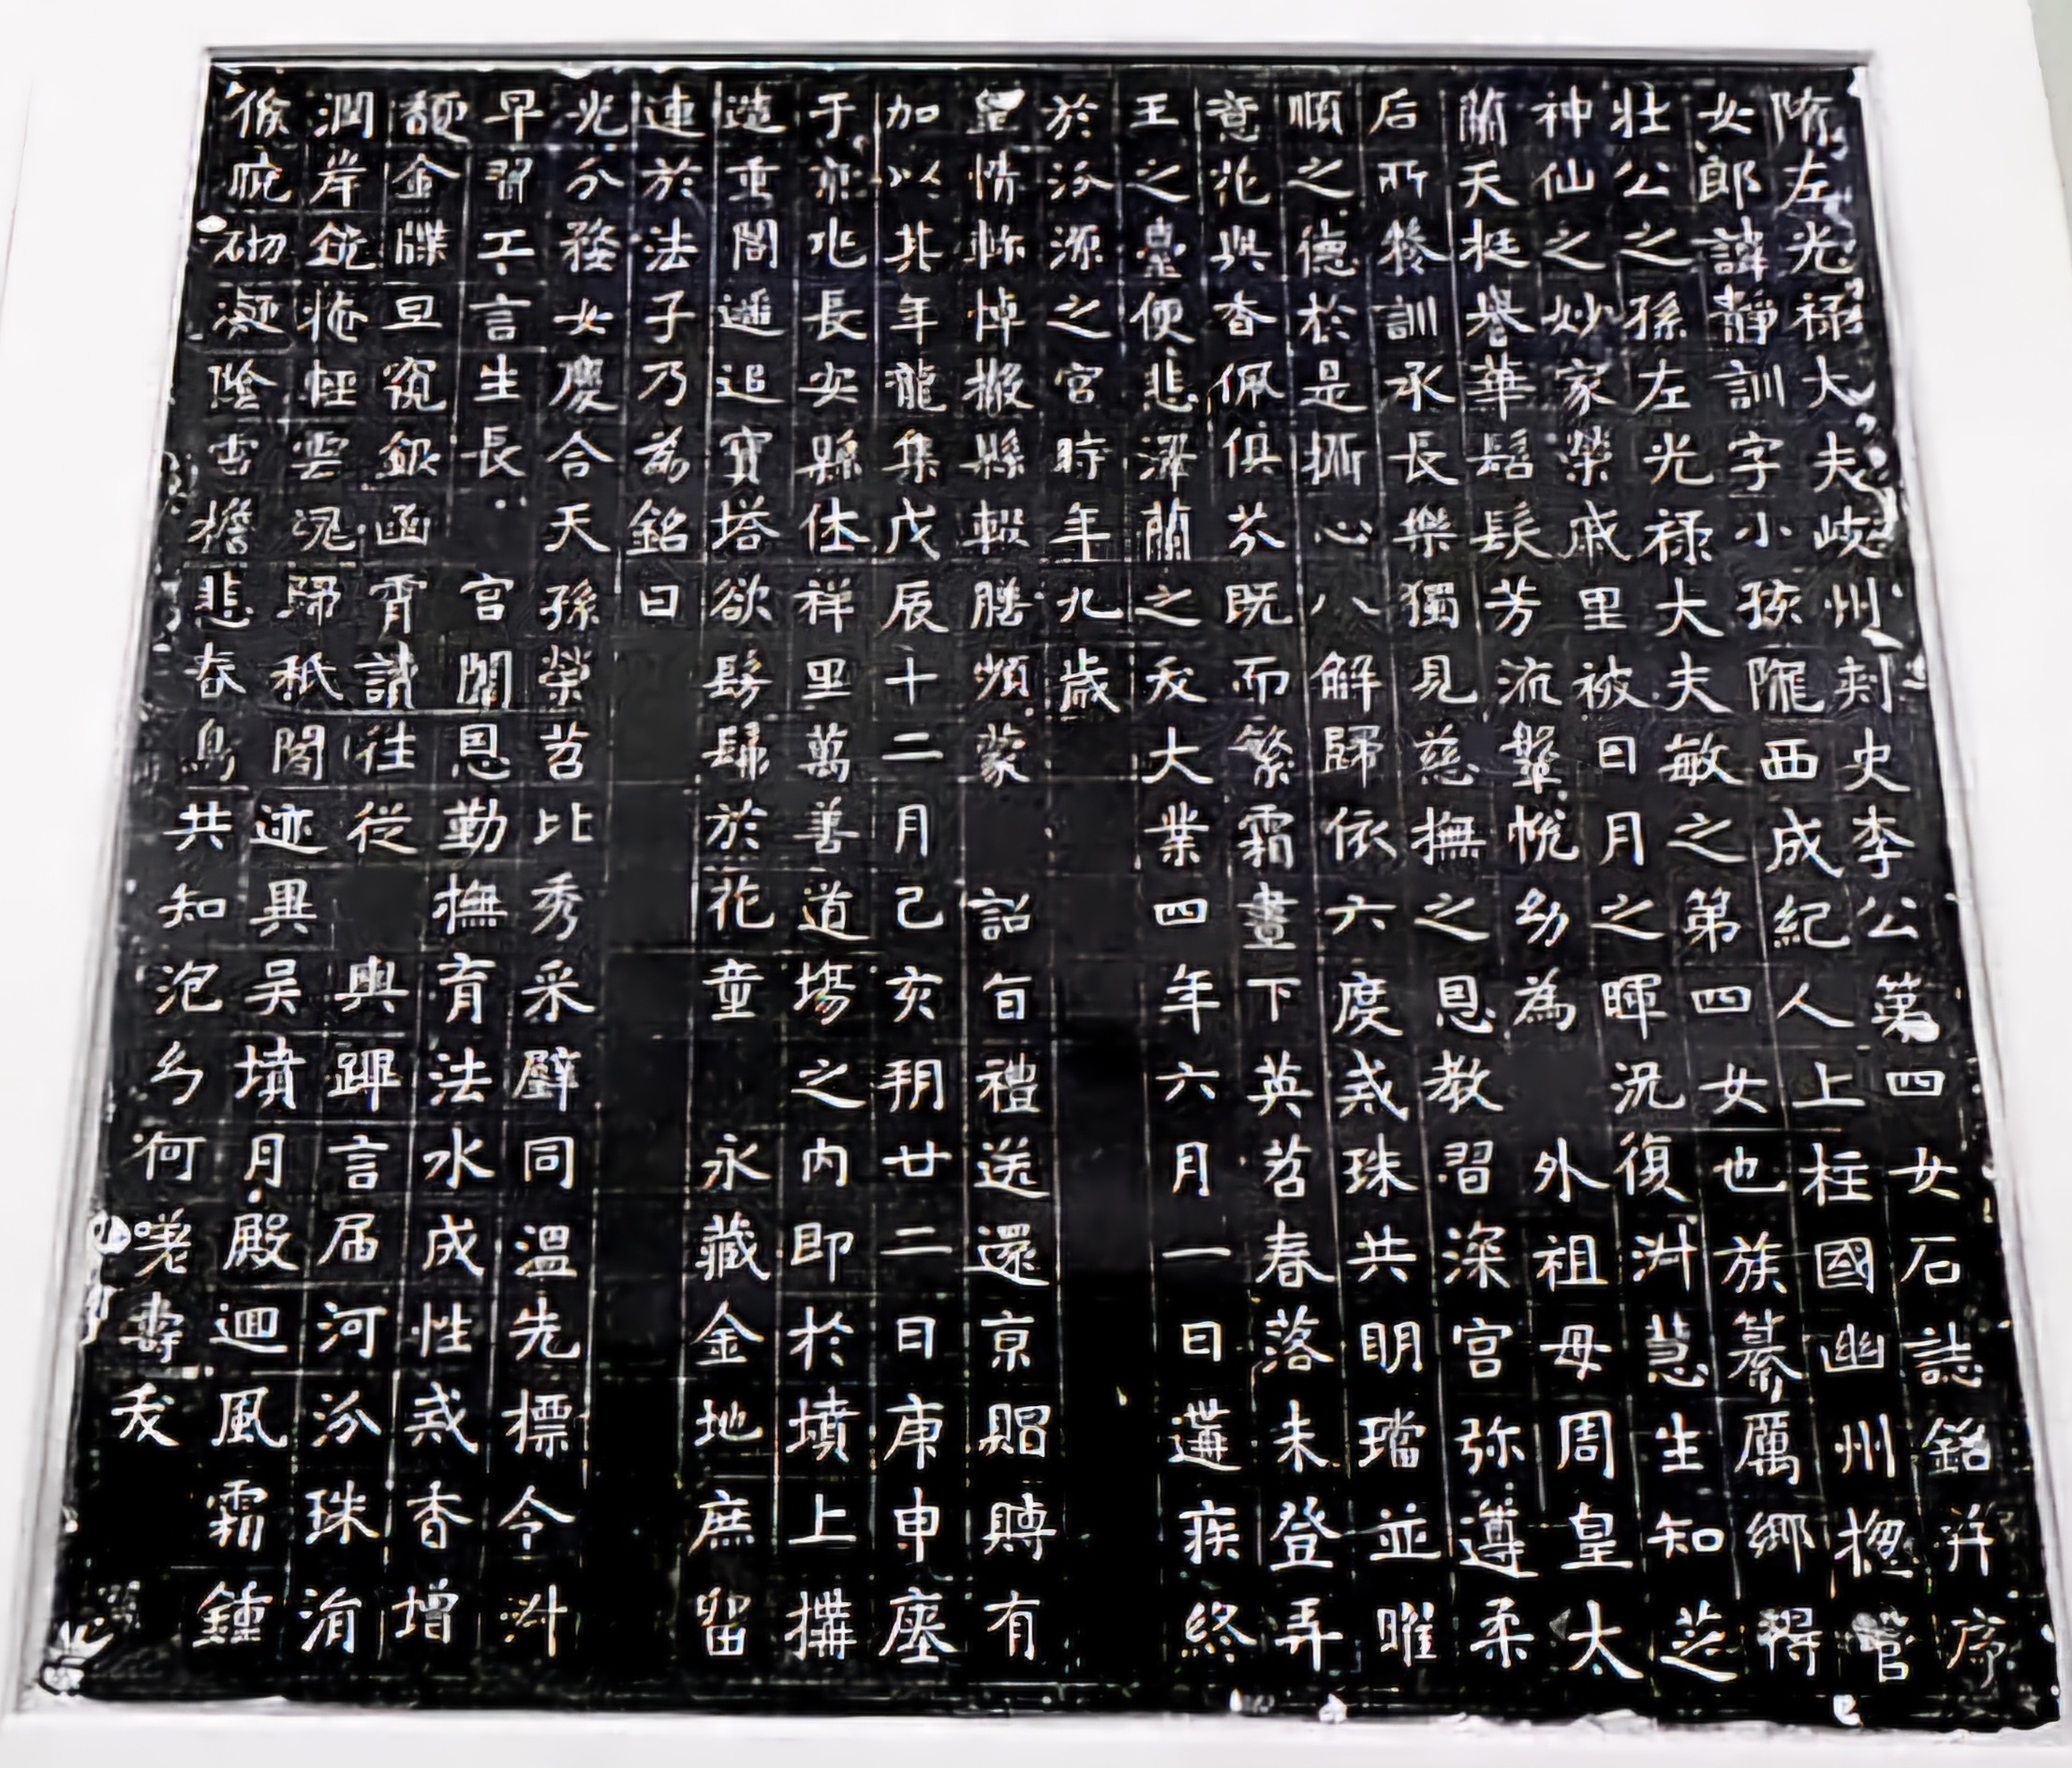 隋左光祿大夫岐州刾史李公第四女石誌銘并序
女郎諱靜訓字小孩隴西成紀人上柱國幽州揔管
壯公之孫左光祿大夫敏之第四女也族纂厲鄉得
神仙之妙家榮戚里被日月之暉況復淑慧生知芝
蘭天挺譽華髫髮芳流鞶帨幼為外祖母周皇太
后所養訓承長樂獨見慈撫之恩教習深宮弥遵柔
順之德於是攝心八解歸依六度戒珠共明璫並曜
意花與香佩俱芬既而繁霜晝下英苕春落未登弄
王之臺便悲澤蘭之夭大業四年六月一日遘疾終
於汾源之宮時年九歲
皇情軫悼撤縣輟膳頻蒙詔旨禮送還京賵賻有
加以其年龍集戊辰十二月己亥朔廿二日庚申塟
于京兆長安縣休祥里萬善道場之內即於墳上搆
造重閣遥追寶塔欲髣髴於花童永藏金地庶留
連於法子乃為銘曰
光分婺女慶合天孫榮苕比秀采璧同溫先標令淑
早習工言生長宮闈恩勤撫育法水成性戒香增
馥金牒旦窺銀函宵讀往從輿蹕言届河汾珠涓
潤岸鏡掩輕雲魂歸秪閣迹異吴墳月殿迴風霜鍾
候曉砌凝陰雪檐悲春鳥共知泡幻何嗟壽夭